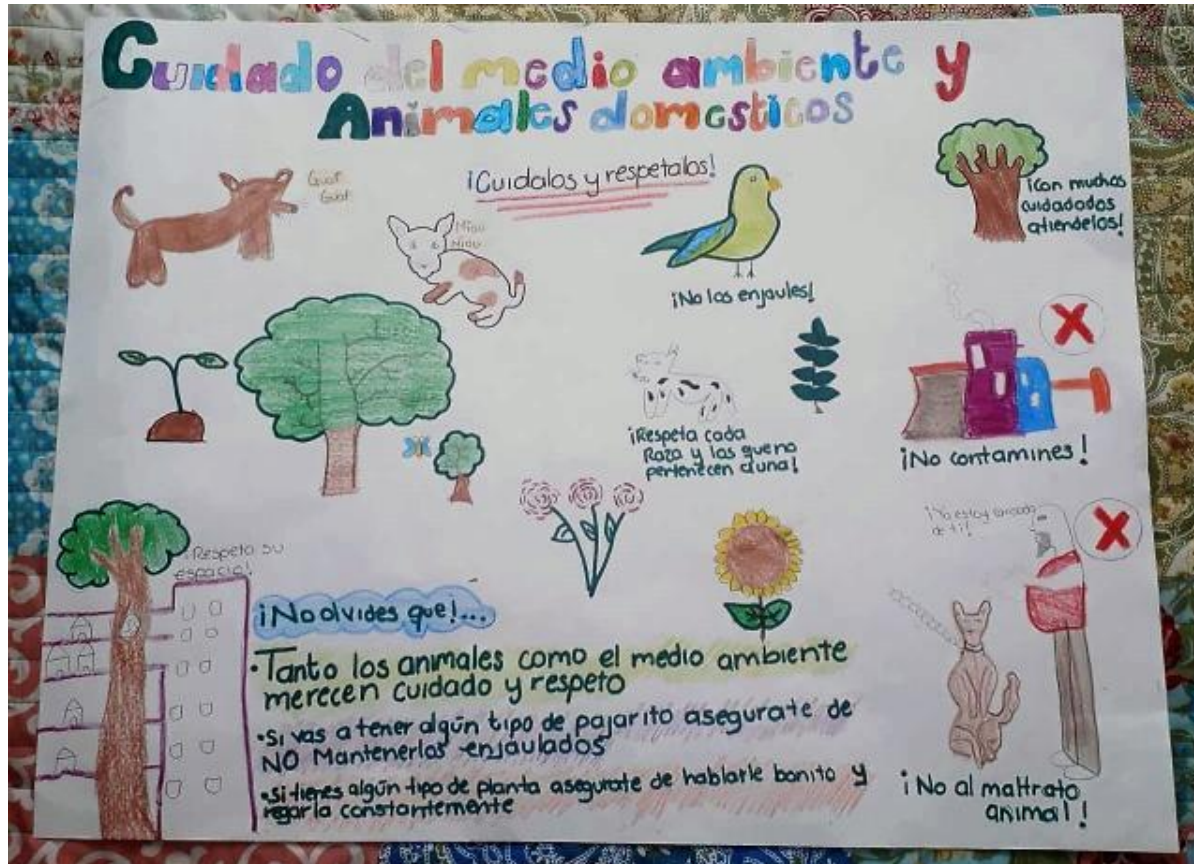 Cuidado del medio ambiente y
Animales domesticos
¡Cuidalos y respetalos!
Guaf
Guaf
Miau
Miau
¡Con muchos
cuidadodos
atiendelos!
¡No los enjaules!
¡Respeta cada
Raza y los que no
pertenecen a una!
¡No contamines!
¡Respeta su
espacio!
¡Ya estoy cansado
de ti!
¡No olvides que!...
•Tanto los animales como el medio ambiente
merecen cuidado y respeto
•Si vas a tener algún tipo de pajarito asegurate de
NO Mantenerlos enjaulados
•si tienes algún tipo de planta asegurate de hablarle bonito y
regarla constantemente
¡No al maltrato
animal!